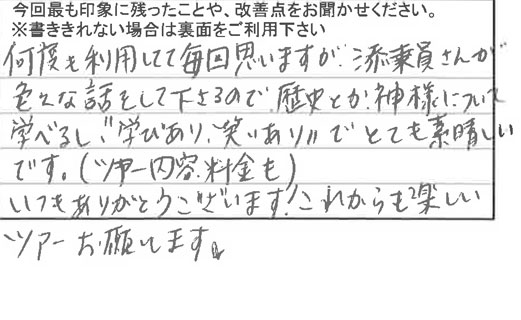 今回最も印象に残ったことや、改善点をお聞かせください。
※書ききれない場合は裏面をご利用下さい
何度も利用してて毎回思いますが、添乗員さんが
色々な話をして下さるので、歴史とか神様について
学べるし、"学びあり、笑いあり"でとても素晴しい
です。(ツアー内容、料金も)
いつもありがとうございます!これからも楽しい
ツアーお願いします。